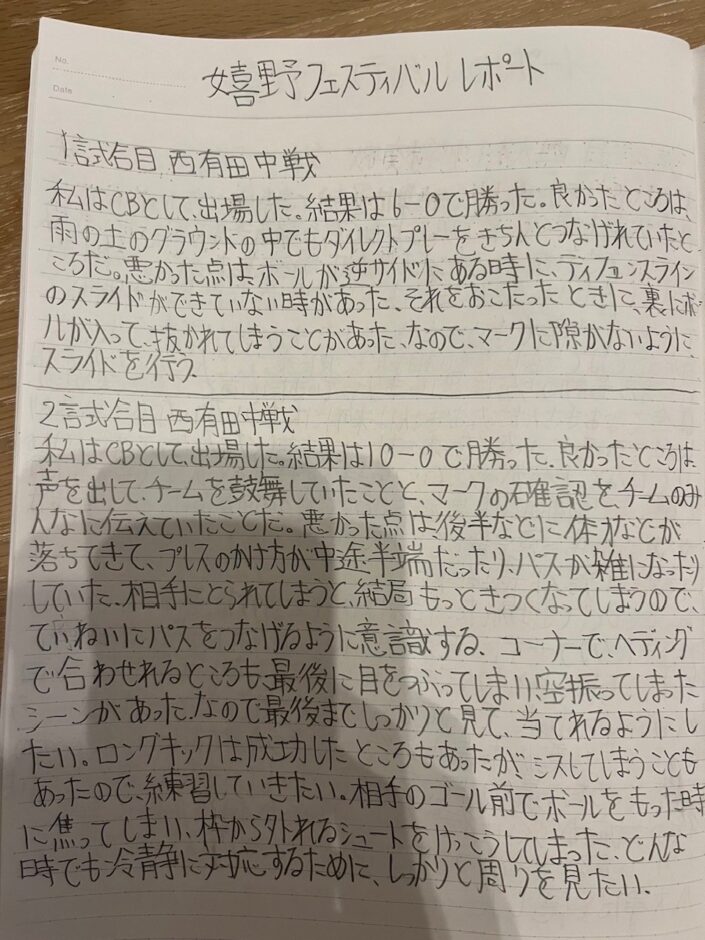 No.
Date
嬉野フェスティバル レポート
1試合目 西有田中戦
私はCBとして、出場した。結果は6-0で勝った。良かったところは、
雨の土のグラウンドの中でもダイレクトプレーをきちんとつなげれていたと
ころだ。悪かった点は、ボールが逆サイドにある時に、ディフェンスライン
のスライドができていない時があった、それをおこたったときに、裏にボー
ルが入って、抜かれてしまうことがあった、なので、マークに隙がないように、
スライドを行う、
2試合目 西有田中戦
私はCBとして、出場した。結果は10-0で勝った、良かったところは
声を出して、チームを鼓舞していたことと、マークの確認を、チームのみ
んなに伝えていたことだ。悪かった点は、後半などに体力などが
落ちてきて、プレスのかけ方が中途半端だったり、パスが雑になったり
していた、相手にとられてしまうと、結局もっときつくなってしまうので、
ていねいにパスをつなげるように意識する、コーナーで、ヘディング
で合わせれるところも、最後に目をつぶってしまい、空振ってしまった
シーンがあった、なので最後までしっかりと見て、当てれるようにし
たい。ロングキックは成功したところもあったが、ミスしてしまうことも
あったので、練習していきたい。相手のゴール前でボールをもった時
に焦ってしまい、枠から外れるシュートをけっこうしてしまった、どんな
時でも冷静に対応するために、しっかりと周りを見たい、